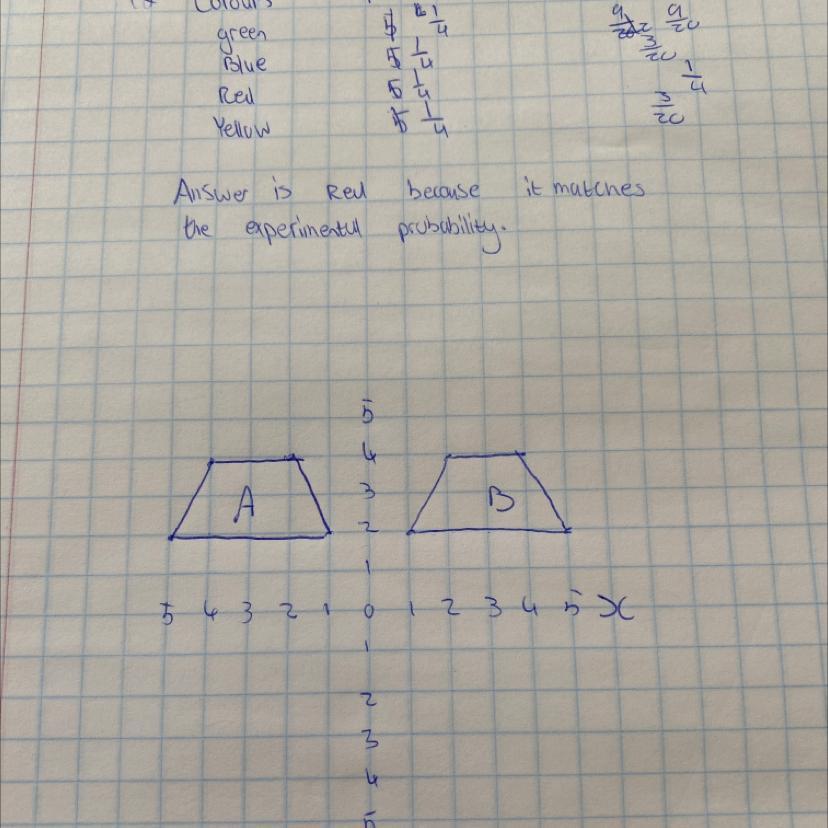 Colours
green 1/4 9/20
Blue 1/4 3/20
Red 1/4 1/4
Yellow 1/4 3/20
Answer is Red because it matches
the experimental probability.
5
4
A 3 B
2
1
5 4 3 2 1 0 1 2 3 4 5 x
1
2
3
4
5